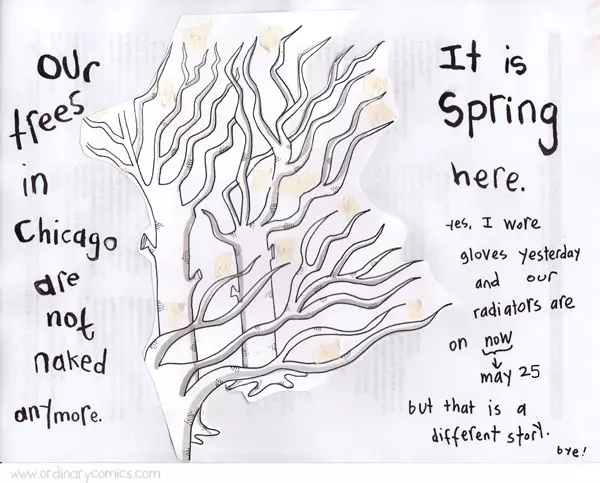 our
trees
in
Chicago
are
not
naked
anymore.
It is
Spring
here.
yes, I wore
gloves yesterday
and our
radiators are
on now
may 25
but that is a
different story.
bye!
www.ordinarycomics.com